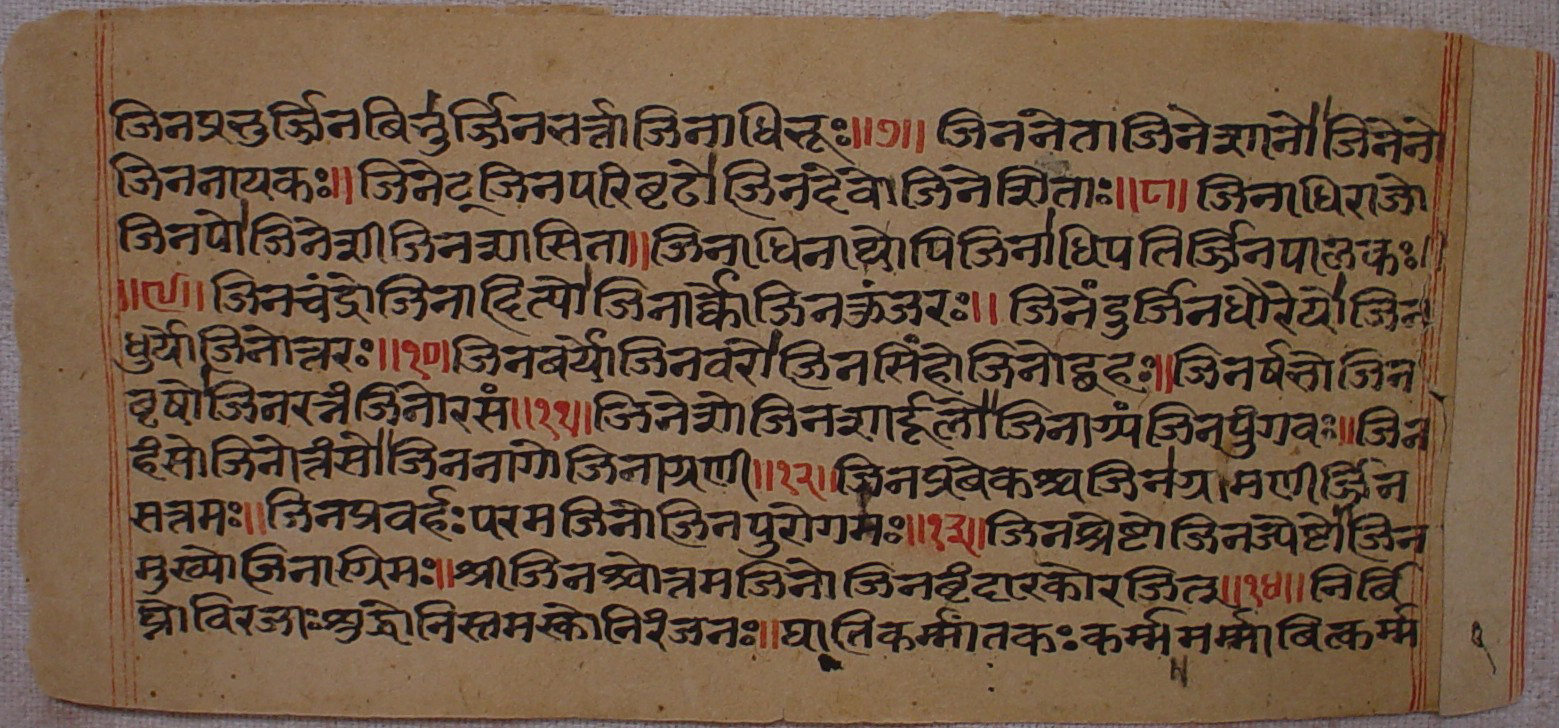 जिनप्रभुर्ज्जिनबिभुर्ज्जिनभर्त्ता जिनाधिभूः॥७॥ जिननेता जिनेशानो जिनेनो
जिननायकः॥ जिनेट् जिनपरिबृढो जिनदेवो जिनेशिताः॥८॥ जिनाधिराजो
जिनपो जिनेशी जिनशासिता॥ जिनाधिनाथोपि जिनाधिपतिर्ज्जिनपालकः॥
॥९॥ जिनचंद्रो जिनादित्यो जिनार्क्को जिनकुंजरः॥ जिनेंदुर्जिनधौरेयो जिन
धुर्यो जिनोत्तरः॥१०॥ जिनबर्यो जिनवरो जिनसिंहो जिनोद्वहः॥ जिनर्षभो जिन
बृषो जिनरत्नं जिनोरसं॥११॥ जिनेशो जिनशार्दूलो जिनाग्र्यं जिनपुंगवः॥ जिन
हंसो जिनोत्तंसो जिननागो जिनाग्रणी॥१२॥ जिनप्रबेकश्च जिनग्रामणीर्ज्जिन
सत्तमः॥ जिनप्रवर्हः परमजिनो जिनपुरोगमः॥१३॥ जिनश्रेष्टो जिनज्येष्टो जिन
मुख्यो जिनाग्रिमः॥ श्रीजिनश्चोत्तमजिनो जिनबृंदारकोरजित्॥१४॥ निर्बि
घ्नो विरजाः शुद्धो निस्तमस्को निरंजनः॥ घातिकर्म्मांतकः कर्म्ममर्म्माबित्कर्म्म